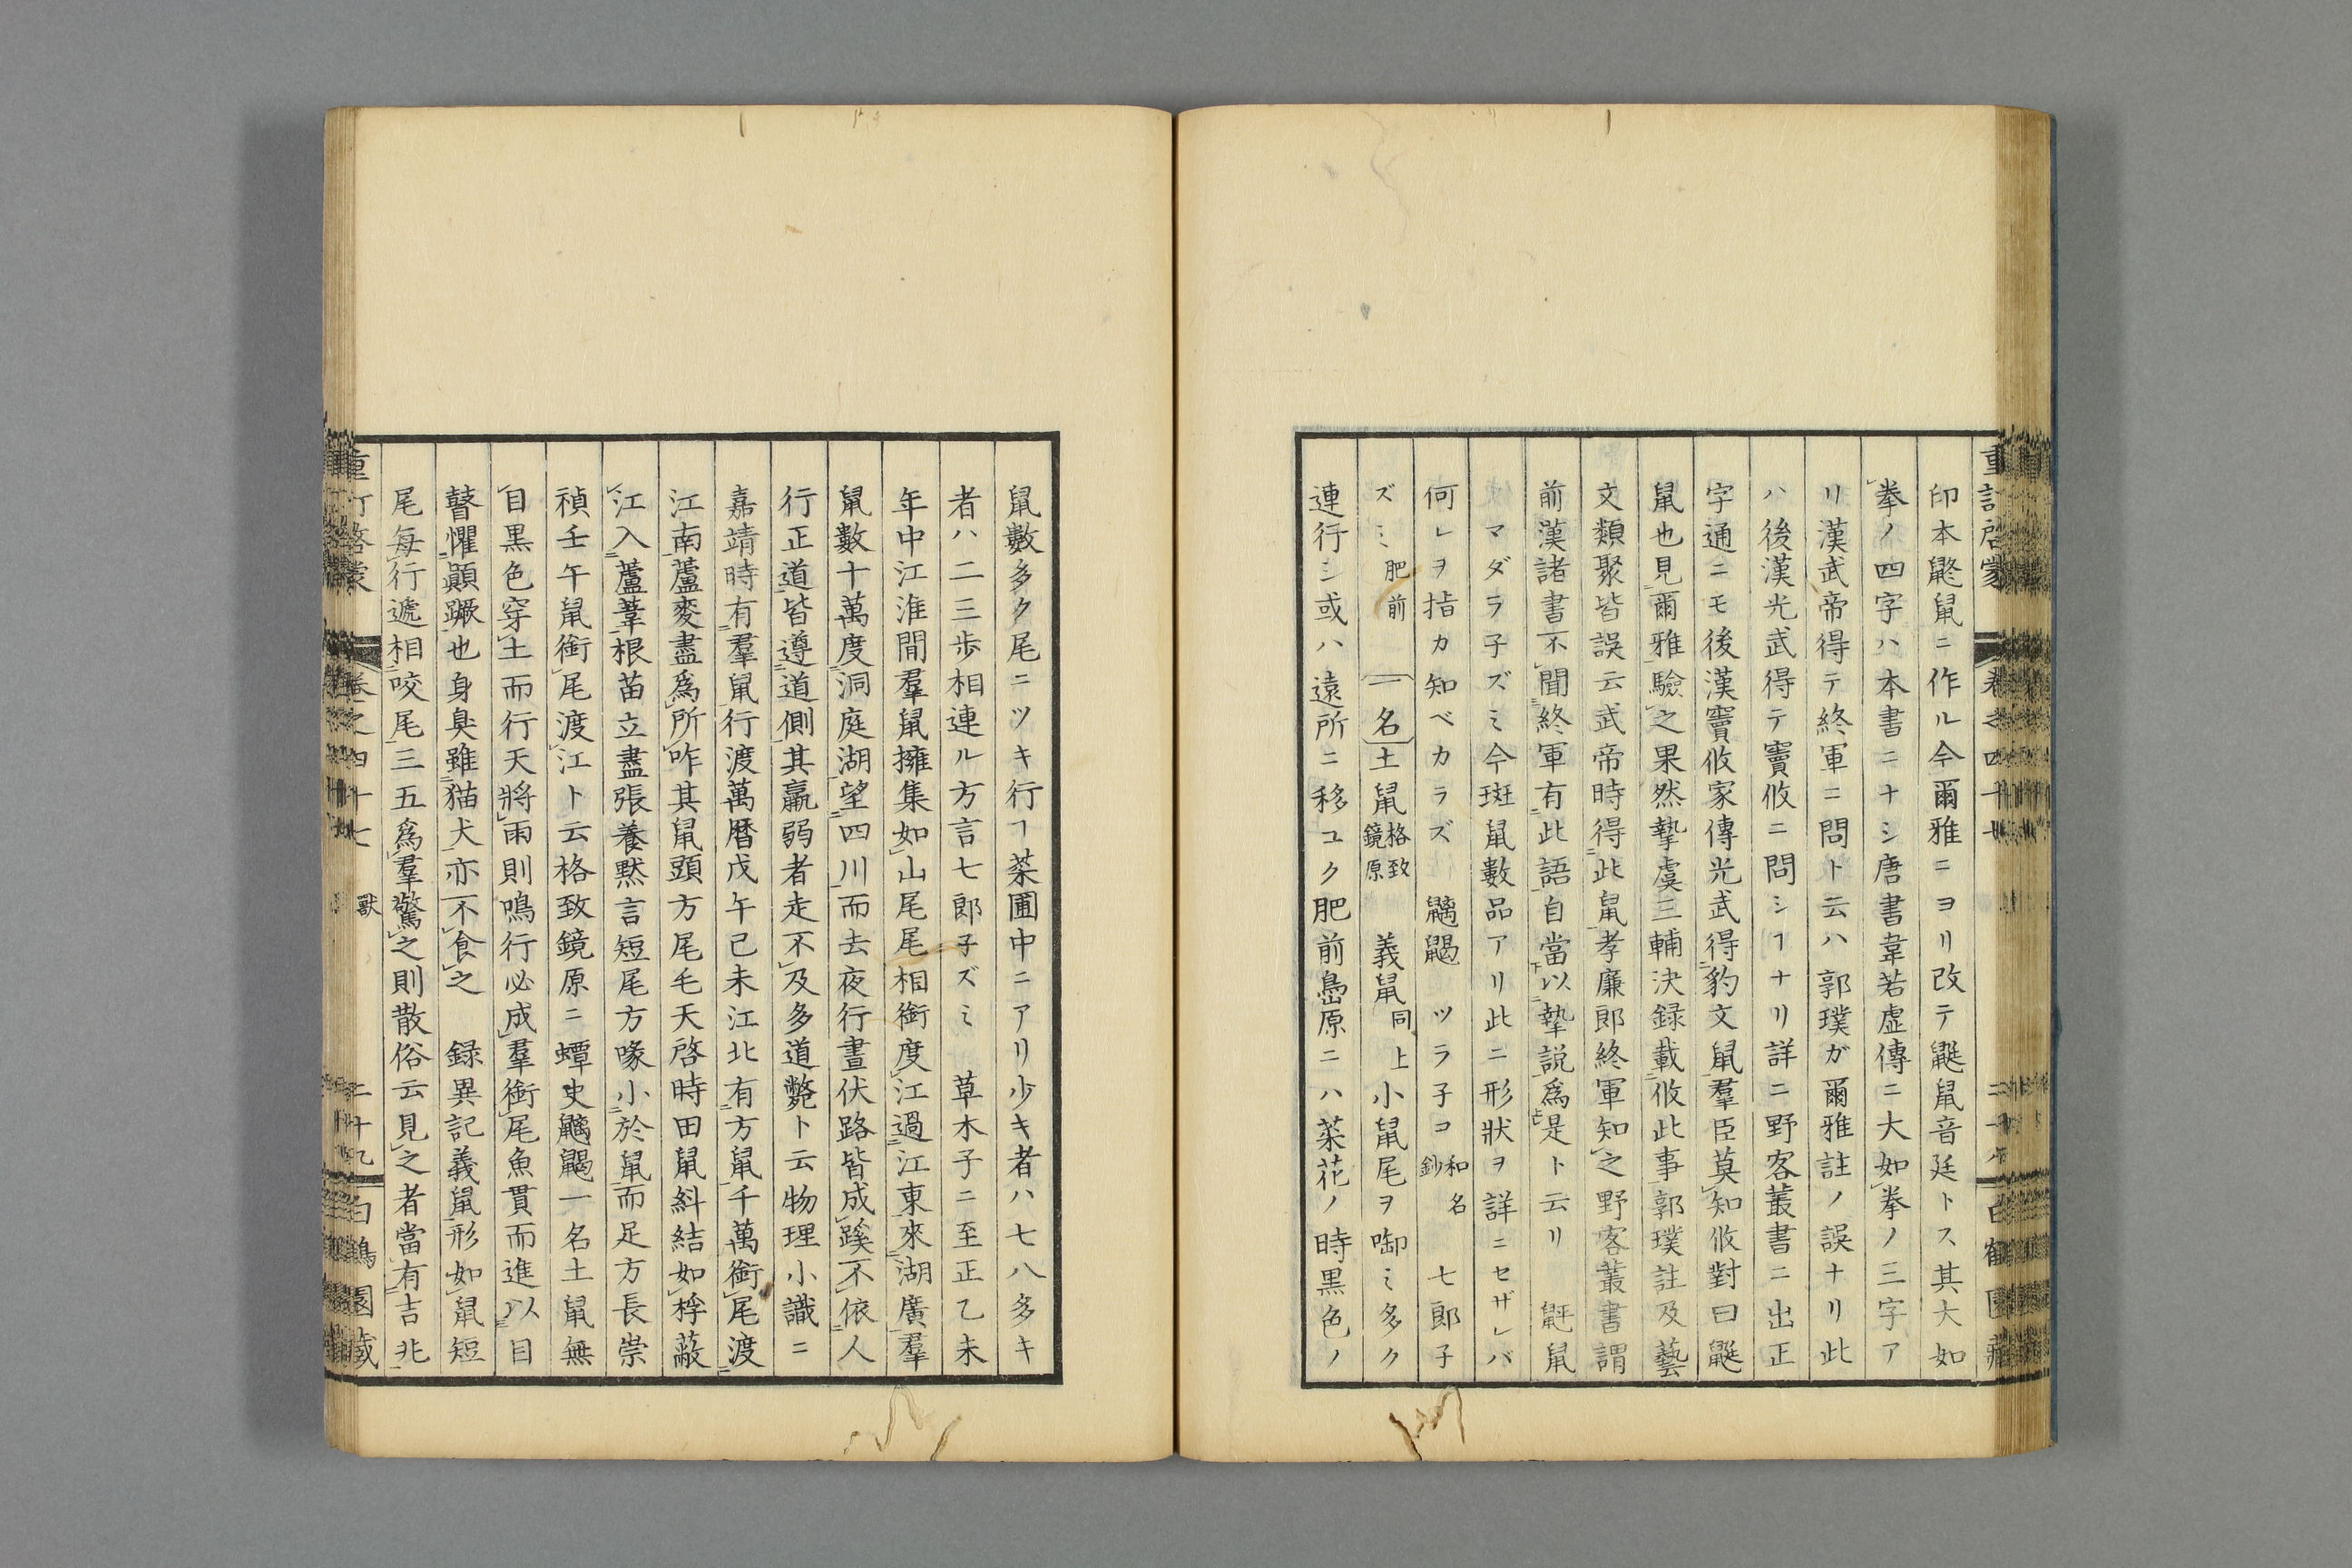 印本鼮鼠ニ作ル今爾雅ニヨリ改テ鼮鼠音廷トス其大如
拳ノ四字ハ本書ニナシ唐書韋若虛傳ニ大如拳ノ三字ア
リ漢武帝得テ終軍ニ問ト云ハ郭璞ガ爾雅註ノ誤ナリ此
ハ後漢光武得テ竇攸ニ問シヿナリ詳ニ野客叢書ニ出正
字通ニモ後漢竇攸家傳光武得豹文鼠羣臣莫知攸對曰鼮
鼠也見爾雅驗之果然摯虞三輔決録載攸此事郭璞註及藝
文類聚皆誤云武帝時得此鼠孝廉郎終軍知之野客叢書謂
前漢諸書不聞終軍有此語自當以摯説爲是ト云リ 鼠
マダラ子ズミ今斑鼠數品アリ此ニ形狀ヲ詳ニセザレバ
何レヲ指カ知ベカラズ 鼸 ツラ子コ 和名鈔 七郎子
ズミ 肥前 一名 土鼠 格致鏡原 義鼠 同上 小鼠尾ヲ啣ミ多ク
連行シ或ハ遠所ニ移ユク肥前島原ニハ菜花ノ時黒色ノ
鼠數多ク尾ニツキ行ヿ菜圃中ニアリ少キ者ハ七八多キ
者ハ二三歩相連ル方言七郎子ズミ 草木子ニ至正乙未
年中江淮間羣鼠擁集如山尾尾相銜度江過江東來湖廣羣
鼠數十萬度洞庭湖望四川而去夜行晝伏路皆成蹊不依人
行正道皆遵道側其羸弱者走不及多道斃ト云物理小識ニ
嘉靖時有羣鼠行渡萬暦戊午己未江北有方鼠千萬銜尾渡
江南蘆麥盡爲所咋其鼠頭方尾毛天啓時田鼠糾結如桴蔽
江入蘆葦根苗立盡張養默言短尾方喙小於鼠而足方長崇
禎壬午鼠銜尾渡江ト云格致鏡原ニ蟫史 一名土鼠無
目黒色穿土而行天將雨則鳴行必成羣銜尾魚貫而進以目
瞽懼顚蹶也身臭雖猫犬亦不食之 録異記義鼠形如鼠短
尾每行遞相咬尾三五爲羣驚之則散俗云見之者當有吉兆
重訂啓蒙 卷之四十七 獸 二十九